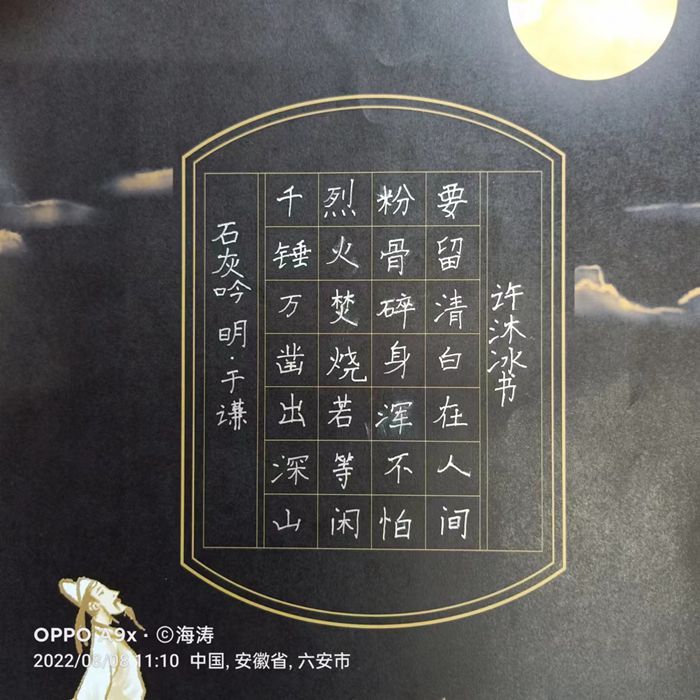 石灰吟 明·于谦
千锤万凿出深山
烈火焚烧若等闲
粉骨碎身浑不怕
要留清白在人间
许沐冰书
OPPO A9x · ©海涛
2022/08/08 11:10 中国, 安徽省, 六安市